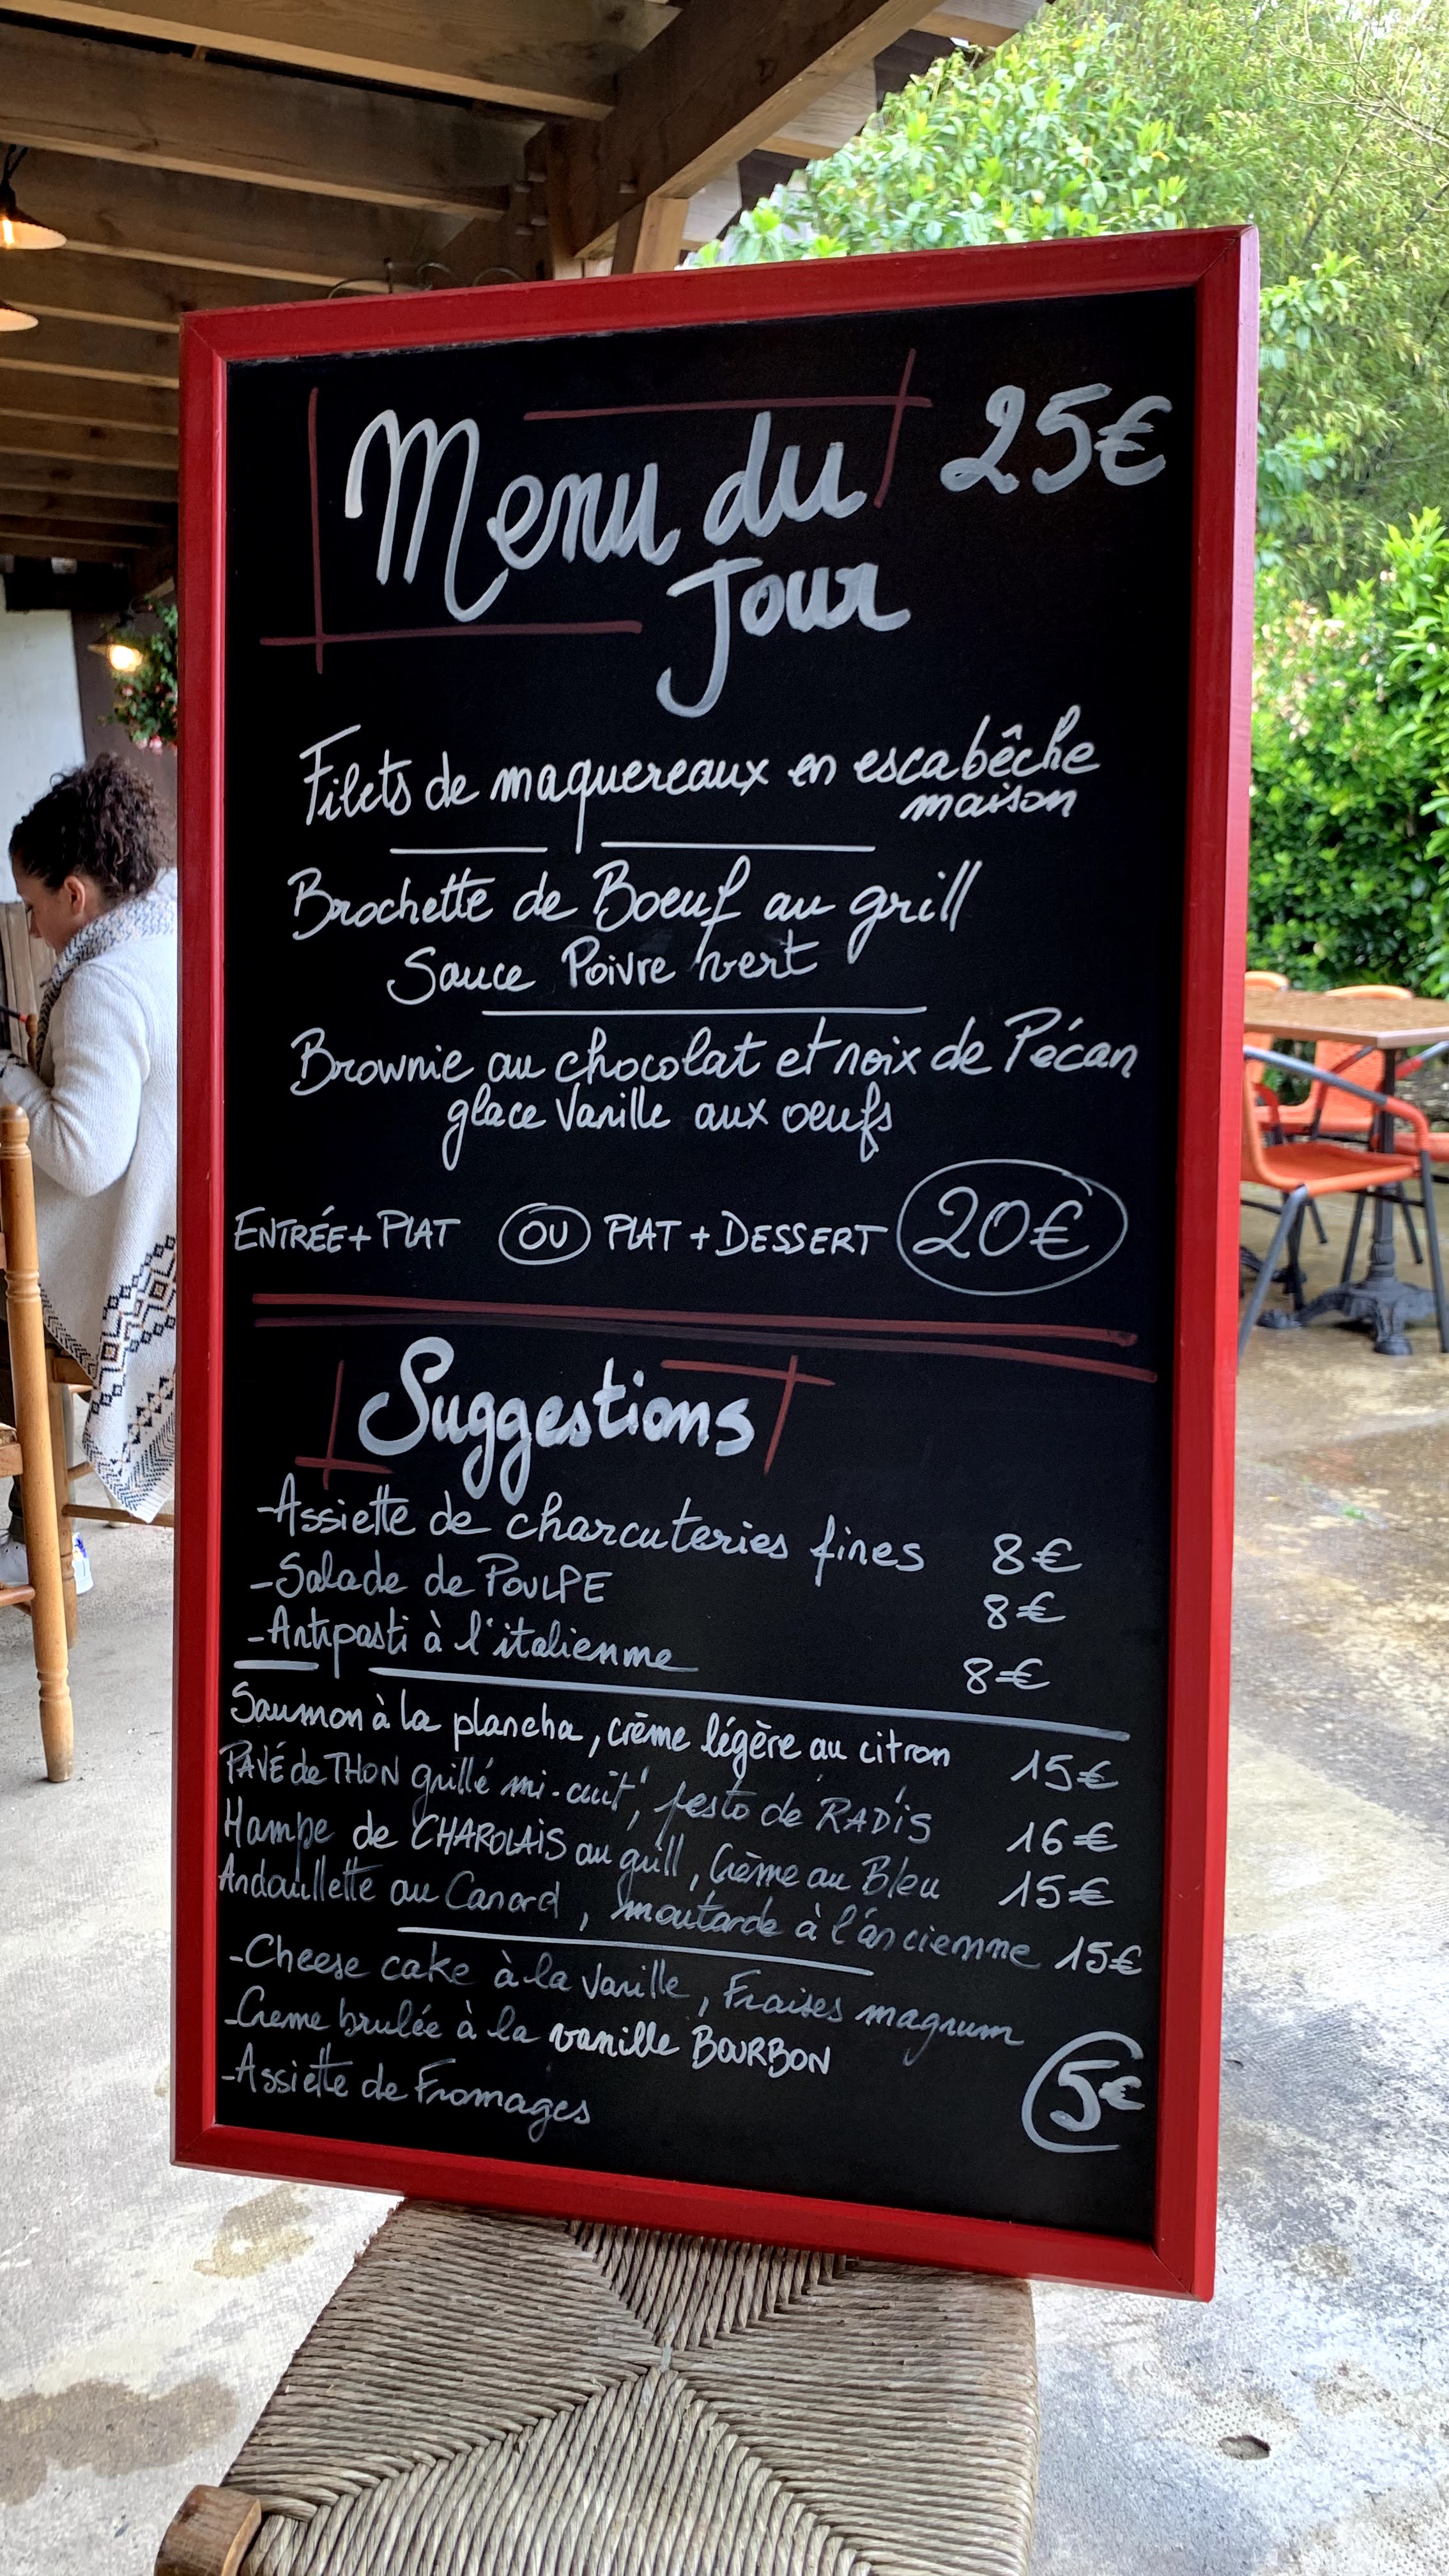 Menu du 25€
Jour
Filets de maquereaux en escabêche
maison
Brochette de Boeuf au grill
Sauce Poivre vert
Brownie au chocolat et noix de Pécan
glace Vanille aux oeufs
ENTRÉE + PLAT OU PLAT + DESSERT 20€
Suggestions
-Assiette de charcuteries fines 8€
-Salade de POULPE 8€
-Antipasti à l'italienne 8€
Saumon à la plancha, crème légère au citron 15€
PAVÉ de THON grillé mi-cuit, pesto de RADIS 16€
Hampe de CHAROLAIS au grill, Crème au Bleu 15€
Andouillette au Canard, moutarde à l'ancienne 15€
-Cheese cake à la Vanille, Fraises magnum
-Creme brulée à la vanille BOURBON
-Assiette de Fromages 5€